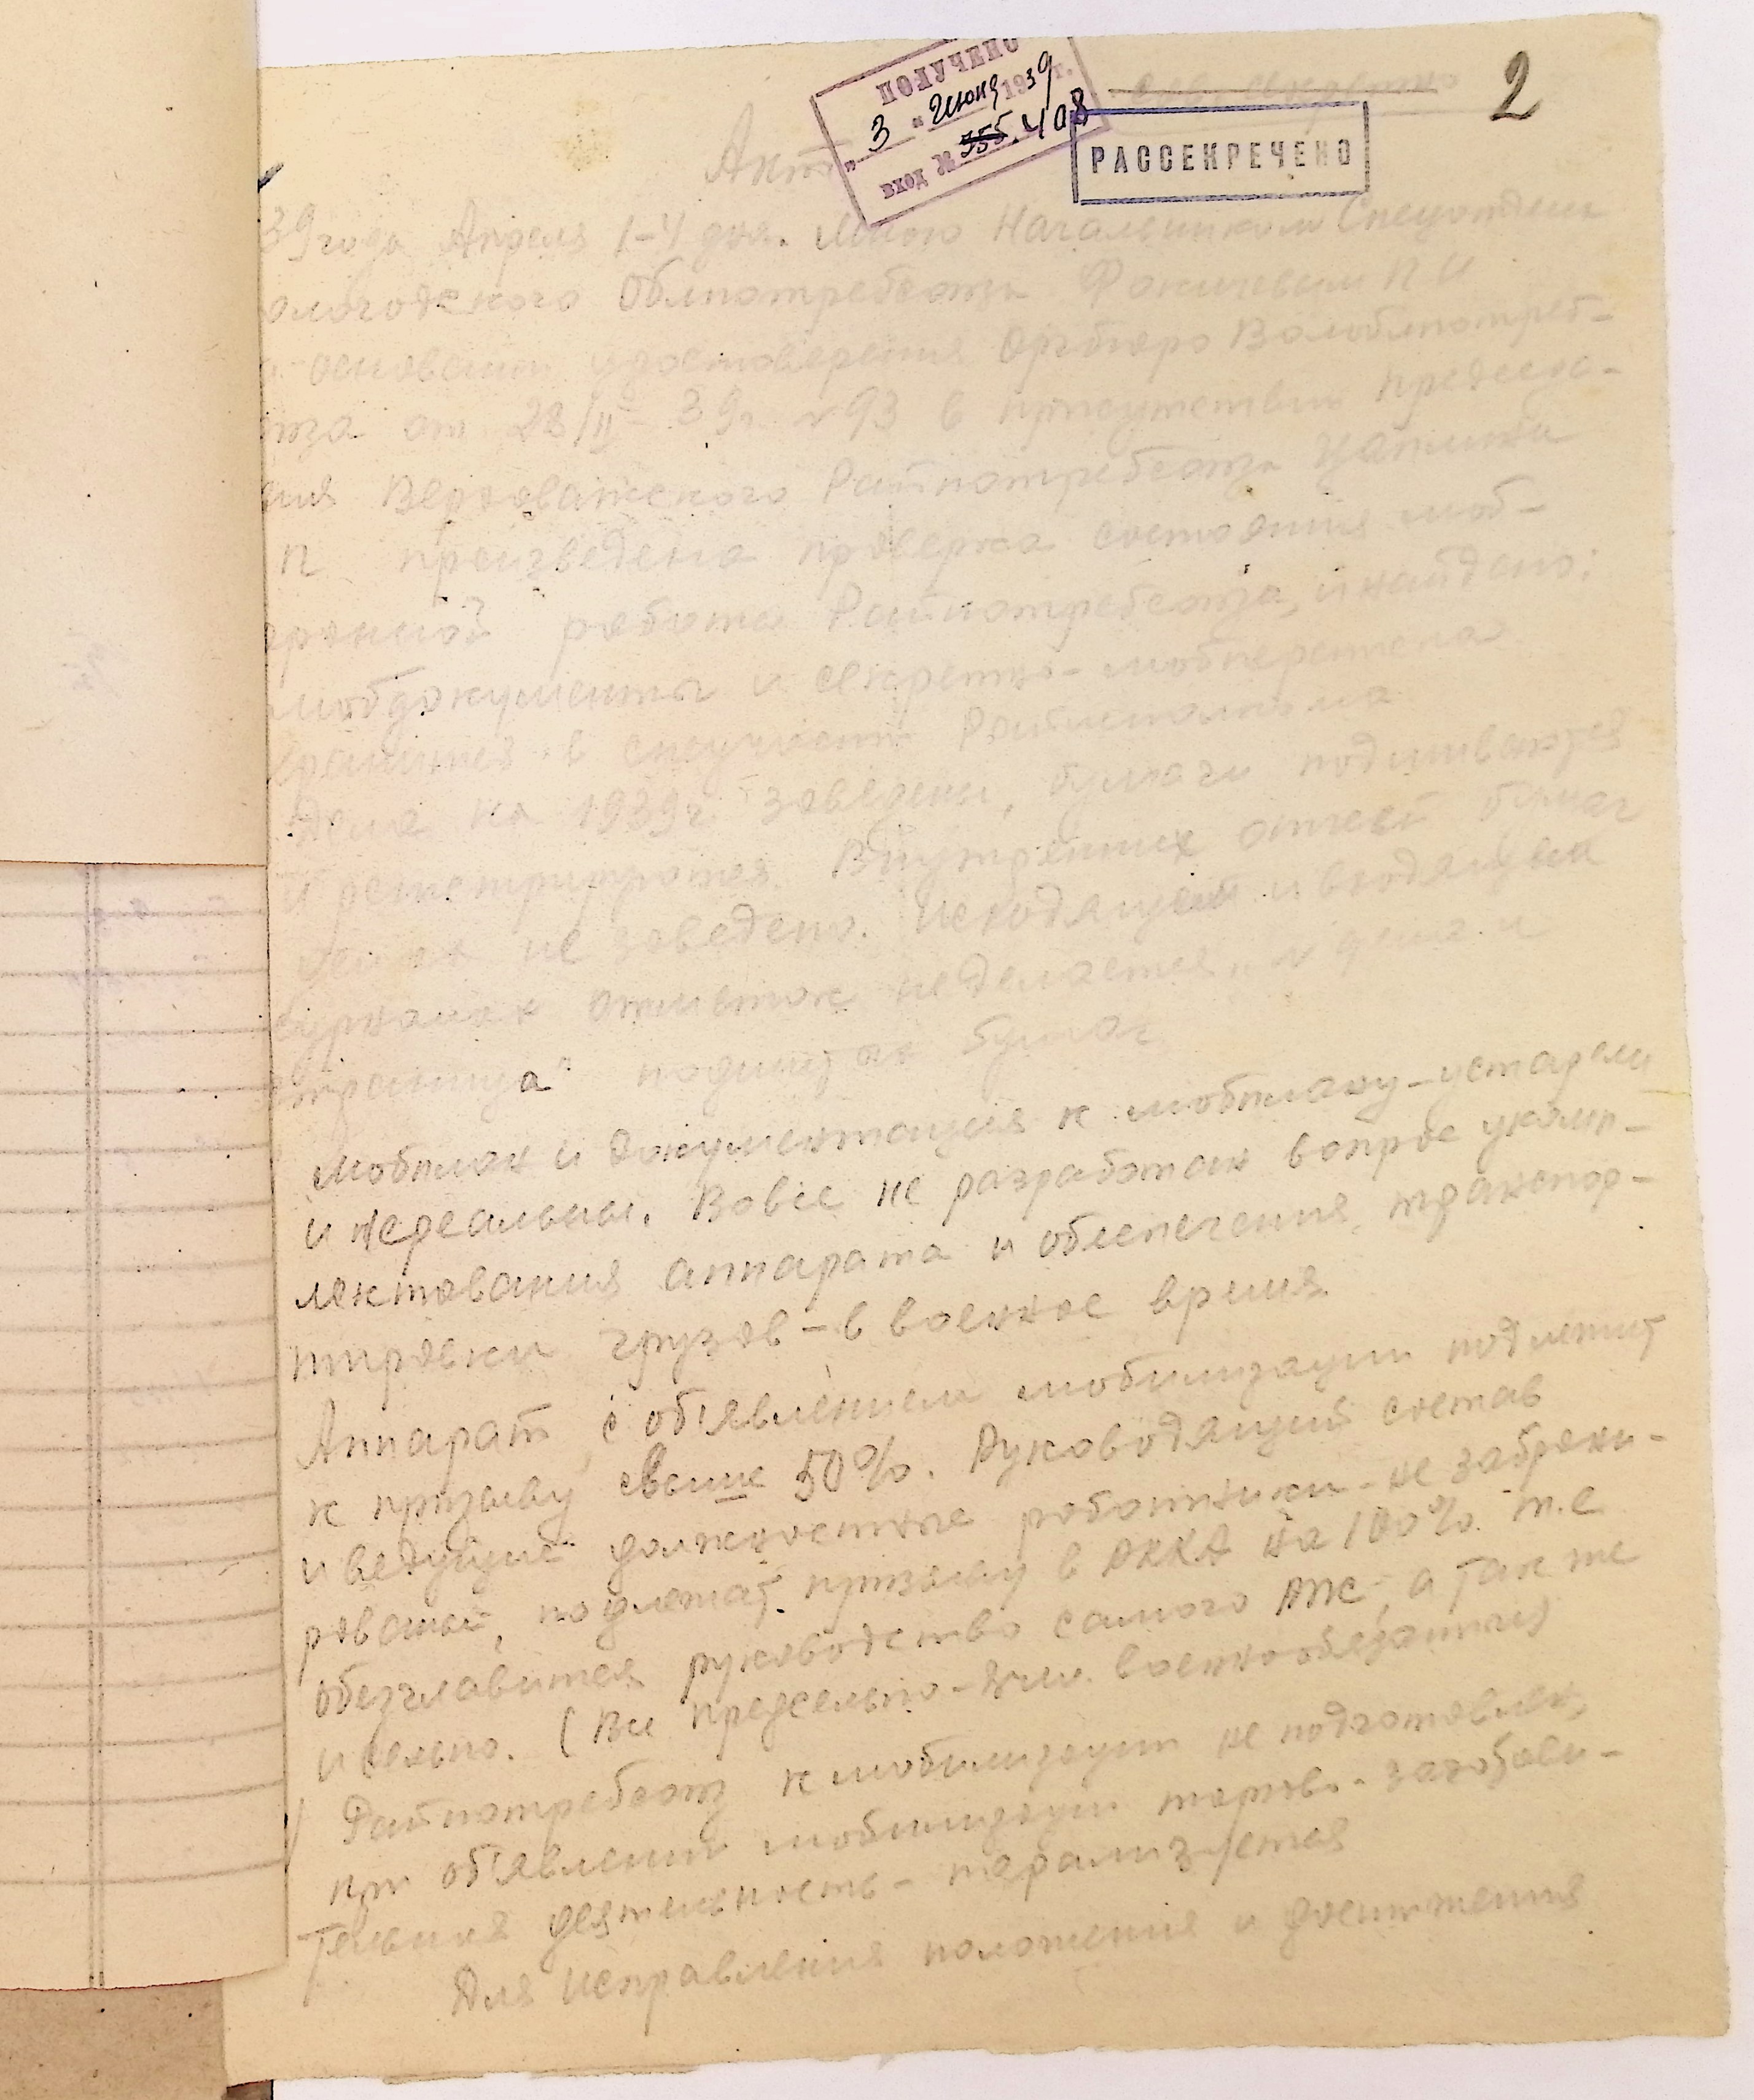 ПОЛУЧЕНО
"3" июня 1939 г.
вход № 355. 408
сов. секретно
2
РАССЕКРЕЧЕНО
Акт
39 года Апреля 1-4 дня. Мною Начальником Спецотдела
ологодского Облпотребсоюза Фокичевым П И
основании удостоверения Оргбюро Вологблпотреб-
юза от 28/II- 39г. №93 в присутствии председа-
Верховажского Райпотребсоюза
П произведена проверка состояния моб-
работы Райпотребсоюза, и найдено:
мобдокументы и секретно-мобпереписка
хранится в спецчасти Райисполкома
Дела на 1939г. заведены, бумаги подшиваются
и регистрируются. Внутренних описей бумаг
не заведено. Исходящей и входящей
журналах отметок не делается "№ дела и
страница" подшитых бумаг
Мобплан и документация к мобплану-устарели
и нереальны. Вовсе не разработан вопрос укомп-
лектования аппарата и обеспечения, транспор-
тировки грузов - в военное время.
Аппарат, с об'явлением мобилизации подлежит
к призыву свыше 50%. Руководящий состав
и ведущие должностные работники - не заброни-
рованы, подлежат призыву в РККА на 100% т.е
обезглавится руководство самого РПС, а так же
и сельпо. (Все предсельпо - военнообязанные)
Райпотребсоюз к мобилизации не подготовлен,
при об'явлении мобилизации торгово-заготови-
тельная деятельность - парализуется
Для исправления положения и достижения